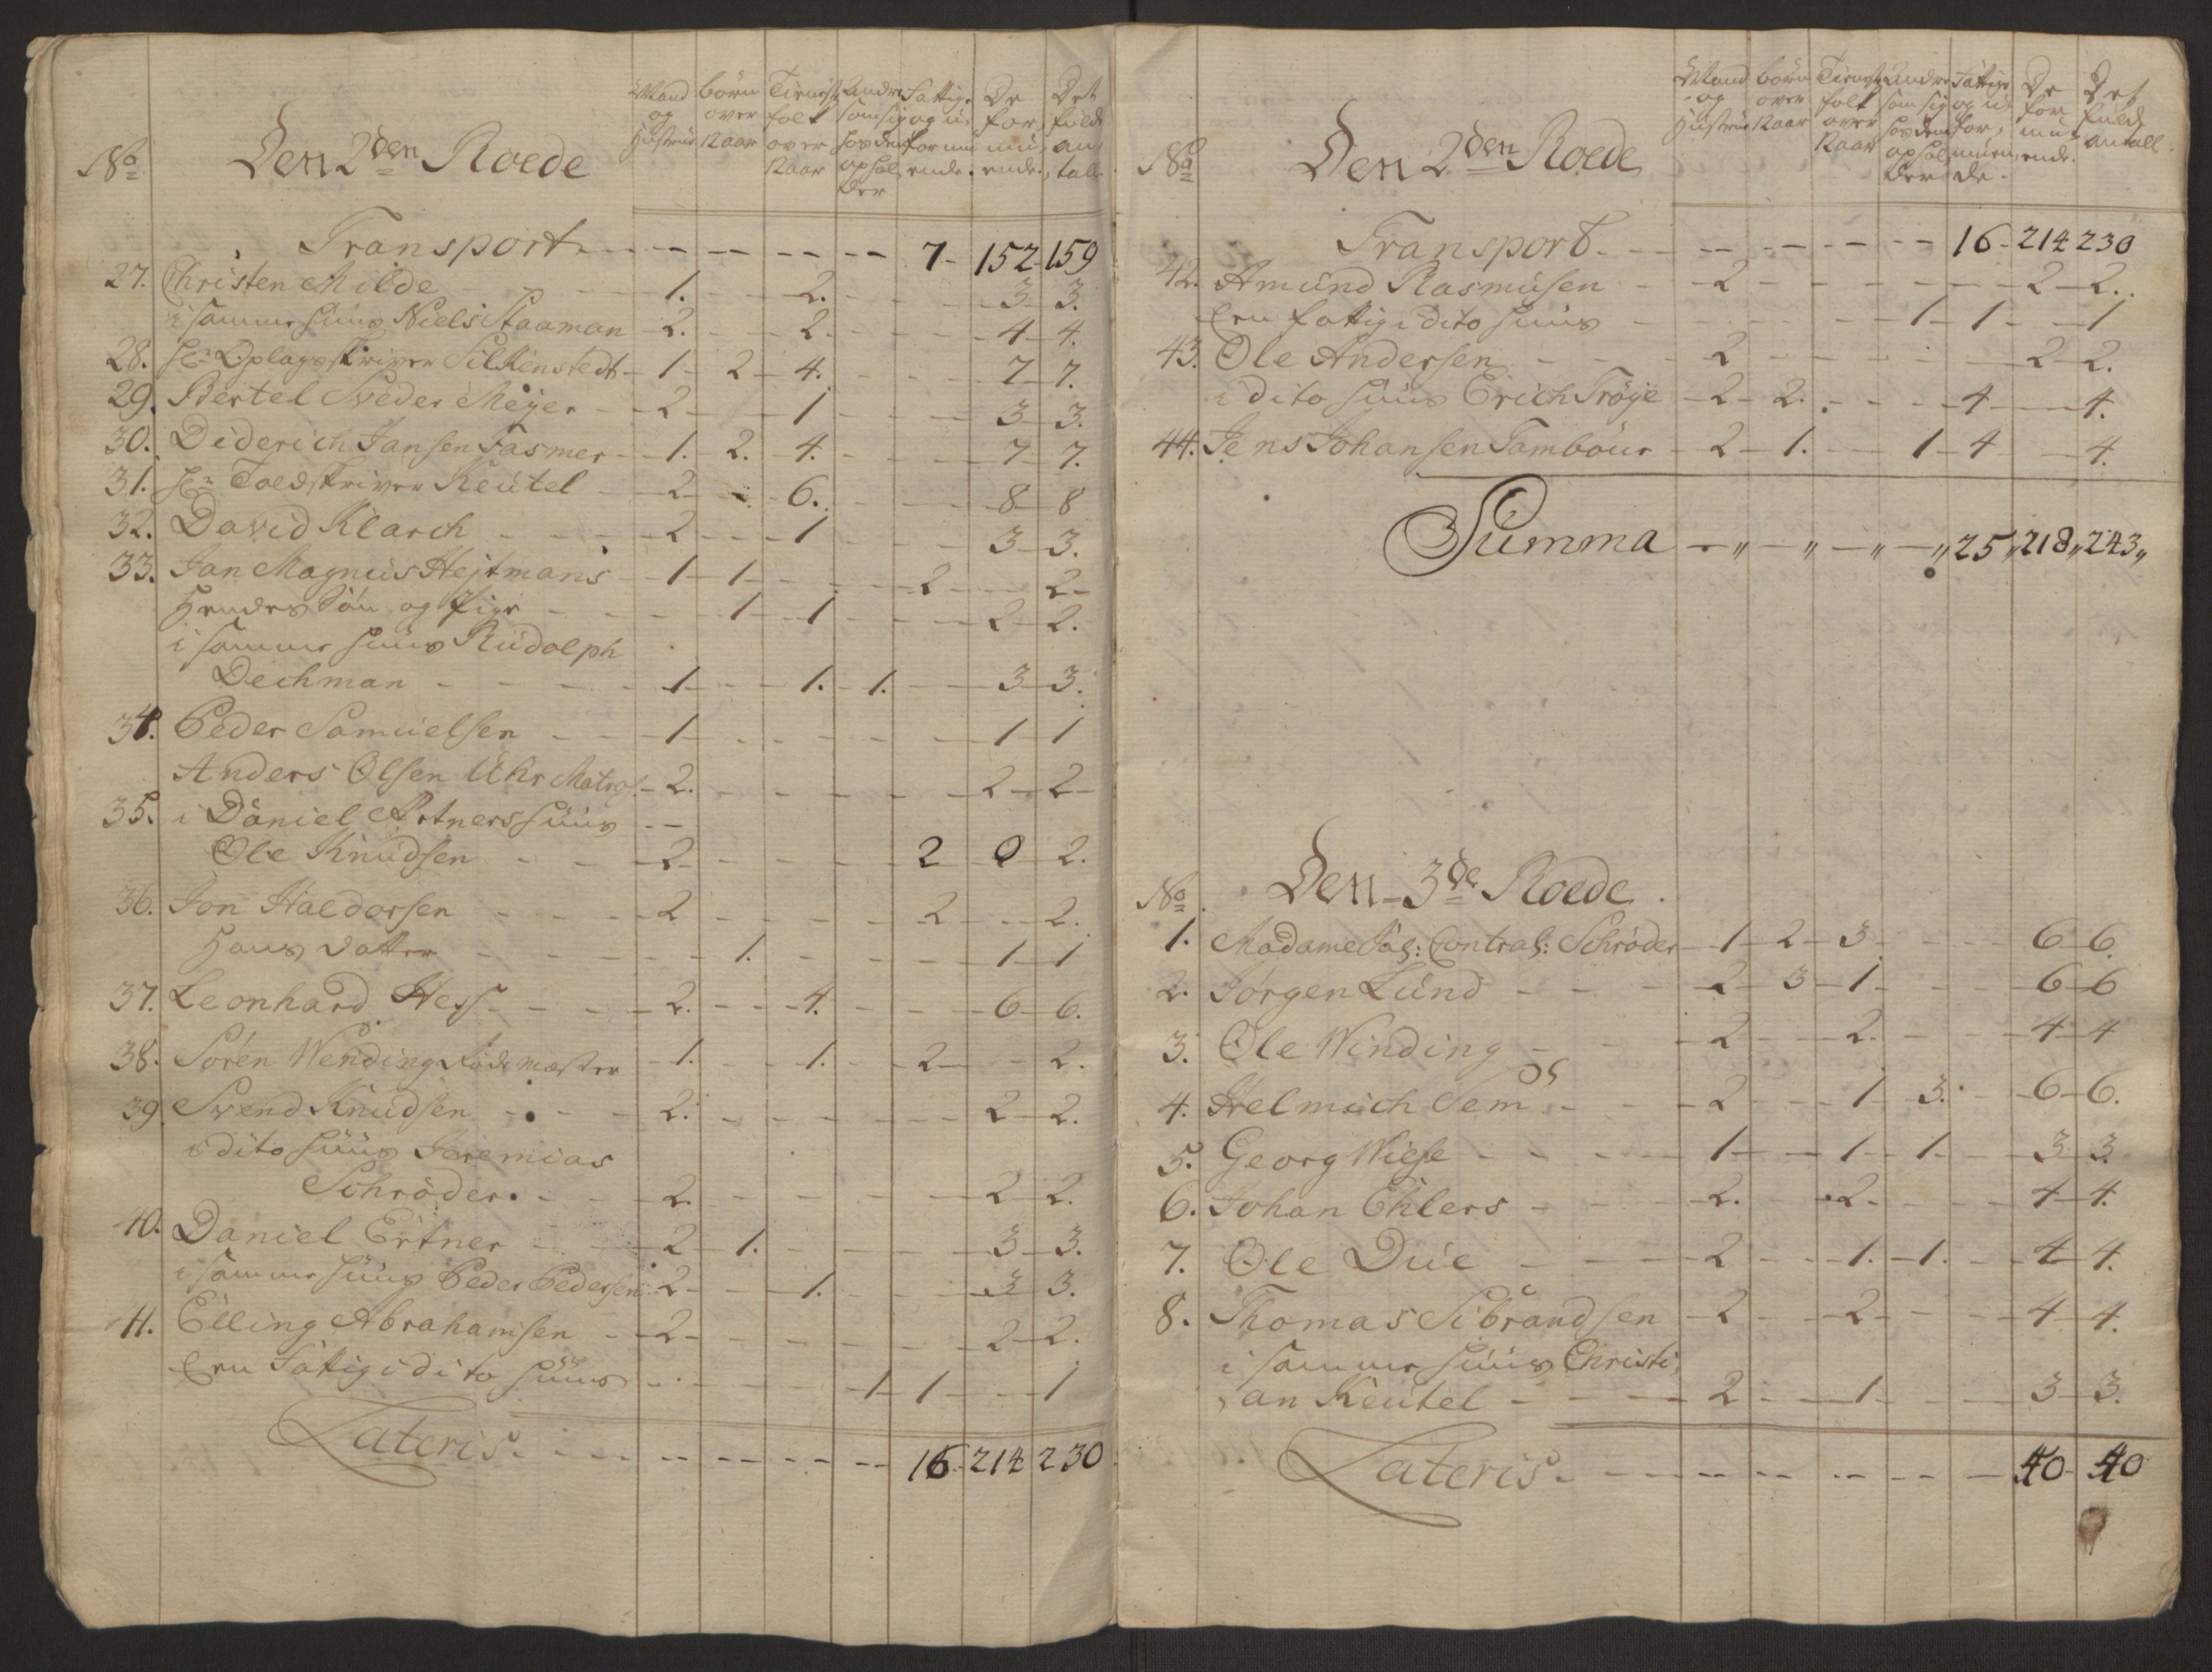 No Den 2den Roede Mand og Hustrue börn over 12 aar Tieneste folk over 12 aar Andre som sig hos dem opholder Fattige og u, formuende. De formu, ende. Det fulde an, tall.
Transport - - - - - 7 - 152 - 159
27. Christen Milde - 1. - 2. - 3 - 3.
i samme huus Niels Staaman - 2. - 2. - 4 - 4.
28. Hr Oplagsskriver Silkenstedt - 1 - 2 - 4. - 7 - 7.
29. Bertel Sveder Meyer - 2 - 1 - 3 - 3.
30. Diderich Jansen Fasmer - 1. - 2. - 4. - 7 - 7.
31. Hr Toldskriver Keutel - 2 - 6. - 8 - 8
32. David Klarch - 2 - 1 - 3 - 3.
33. Jan Magnus Hejtmans - 1 - 1 - 2 - 2 -
Hendes Sön og Pige - 1 - 1 - 2 - 2.
i samme huus Rudolph
Dechman - 1 - 1. - 1. - 3 - 3.
34. Peder Samuelsen - 1 - 1 - 1
Anders Olsen Uhr Matros. - 2. - 2 - 2 -
35. i Daniel Artners huus - -
Ole Knudsen - 2 - 2 0 2.
36. Jon Haldorsen - 2 - 2 - 2.
Hans datter - 1. - 1 - 1
37. Leonhard Hess - 2. - 4. - 6 - 6.
38. Sören Wending Rodemester - 1. - 1. - 2 - 2.
39. Svend Knudsen - 2. - 2 - 2.
i dito huus Jeremias
Schröder. - 2. - 2 - 2.
40. Daniel Ertner - 2 - 1. - 3 - 3.
i samme huus Peder Pedersen - 2 - 1. - 3 - 3.
41. Elling Abrahamsen - 2 - 2 - 2.
Een Fattig i dito huus - 1 - 1 - 1
Lateris. - - - - - 16 - 214 230
No Den 2den Roede Mand og Hustrue börn over 12 aar Tieneste folk over 12 aar Andre som sig hos dem opholder Fattige og u, for, muen, de. De for, mu, ende. Det fulde antall.
Transport. - - - - - 16 - 214 230
42. Amund Rasmusen - 2 - 2 - 2.
Een fattig i dito huus - 1 - 1 - 1
43. Ole Andersen - 2 - 2 - 2.
i dito huus Erich Tröye - 2 - 2. - 4 - 4.
44. Jens Johansen Tambour - 2 - 1. - 1 - 4 - 4.
Summa - „ - „ - „ - „ 25 „ 218 „ 243 „
No Den 3de Roede.
1. Madame Sal: Control: Schröder - 1 - 2 - 3 - 6 - 6.
2. Jörgen Lund - 2 - 3 - 1 - 6 - 6
3. Ole Winding - 2 - 2. - 4 - 4
4. Helmich Sem - 2 - 1 - 3. - 6 - 6.
5. Georg Wiese - 1 - 1 - 1 - 3 - 3.
6. Johan Ehlers - 2. - 2. - 4 - 4.
7. Ole Due - 2 - 1. - 1. - 4 - 4.
8. Thomas Sibrandsen - 2 - 2 - 4 - 4.
i samme huus Christi,
an Keutel - 2 - 1 - 3 - 3.
Lateris. - - - - - 40 - 40